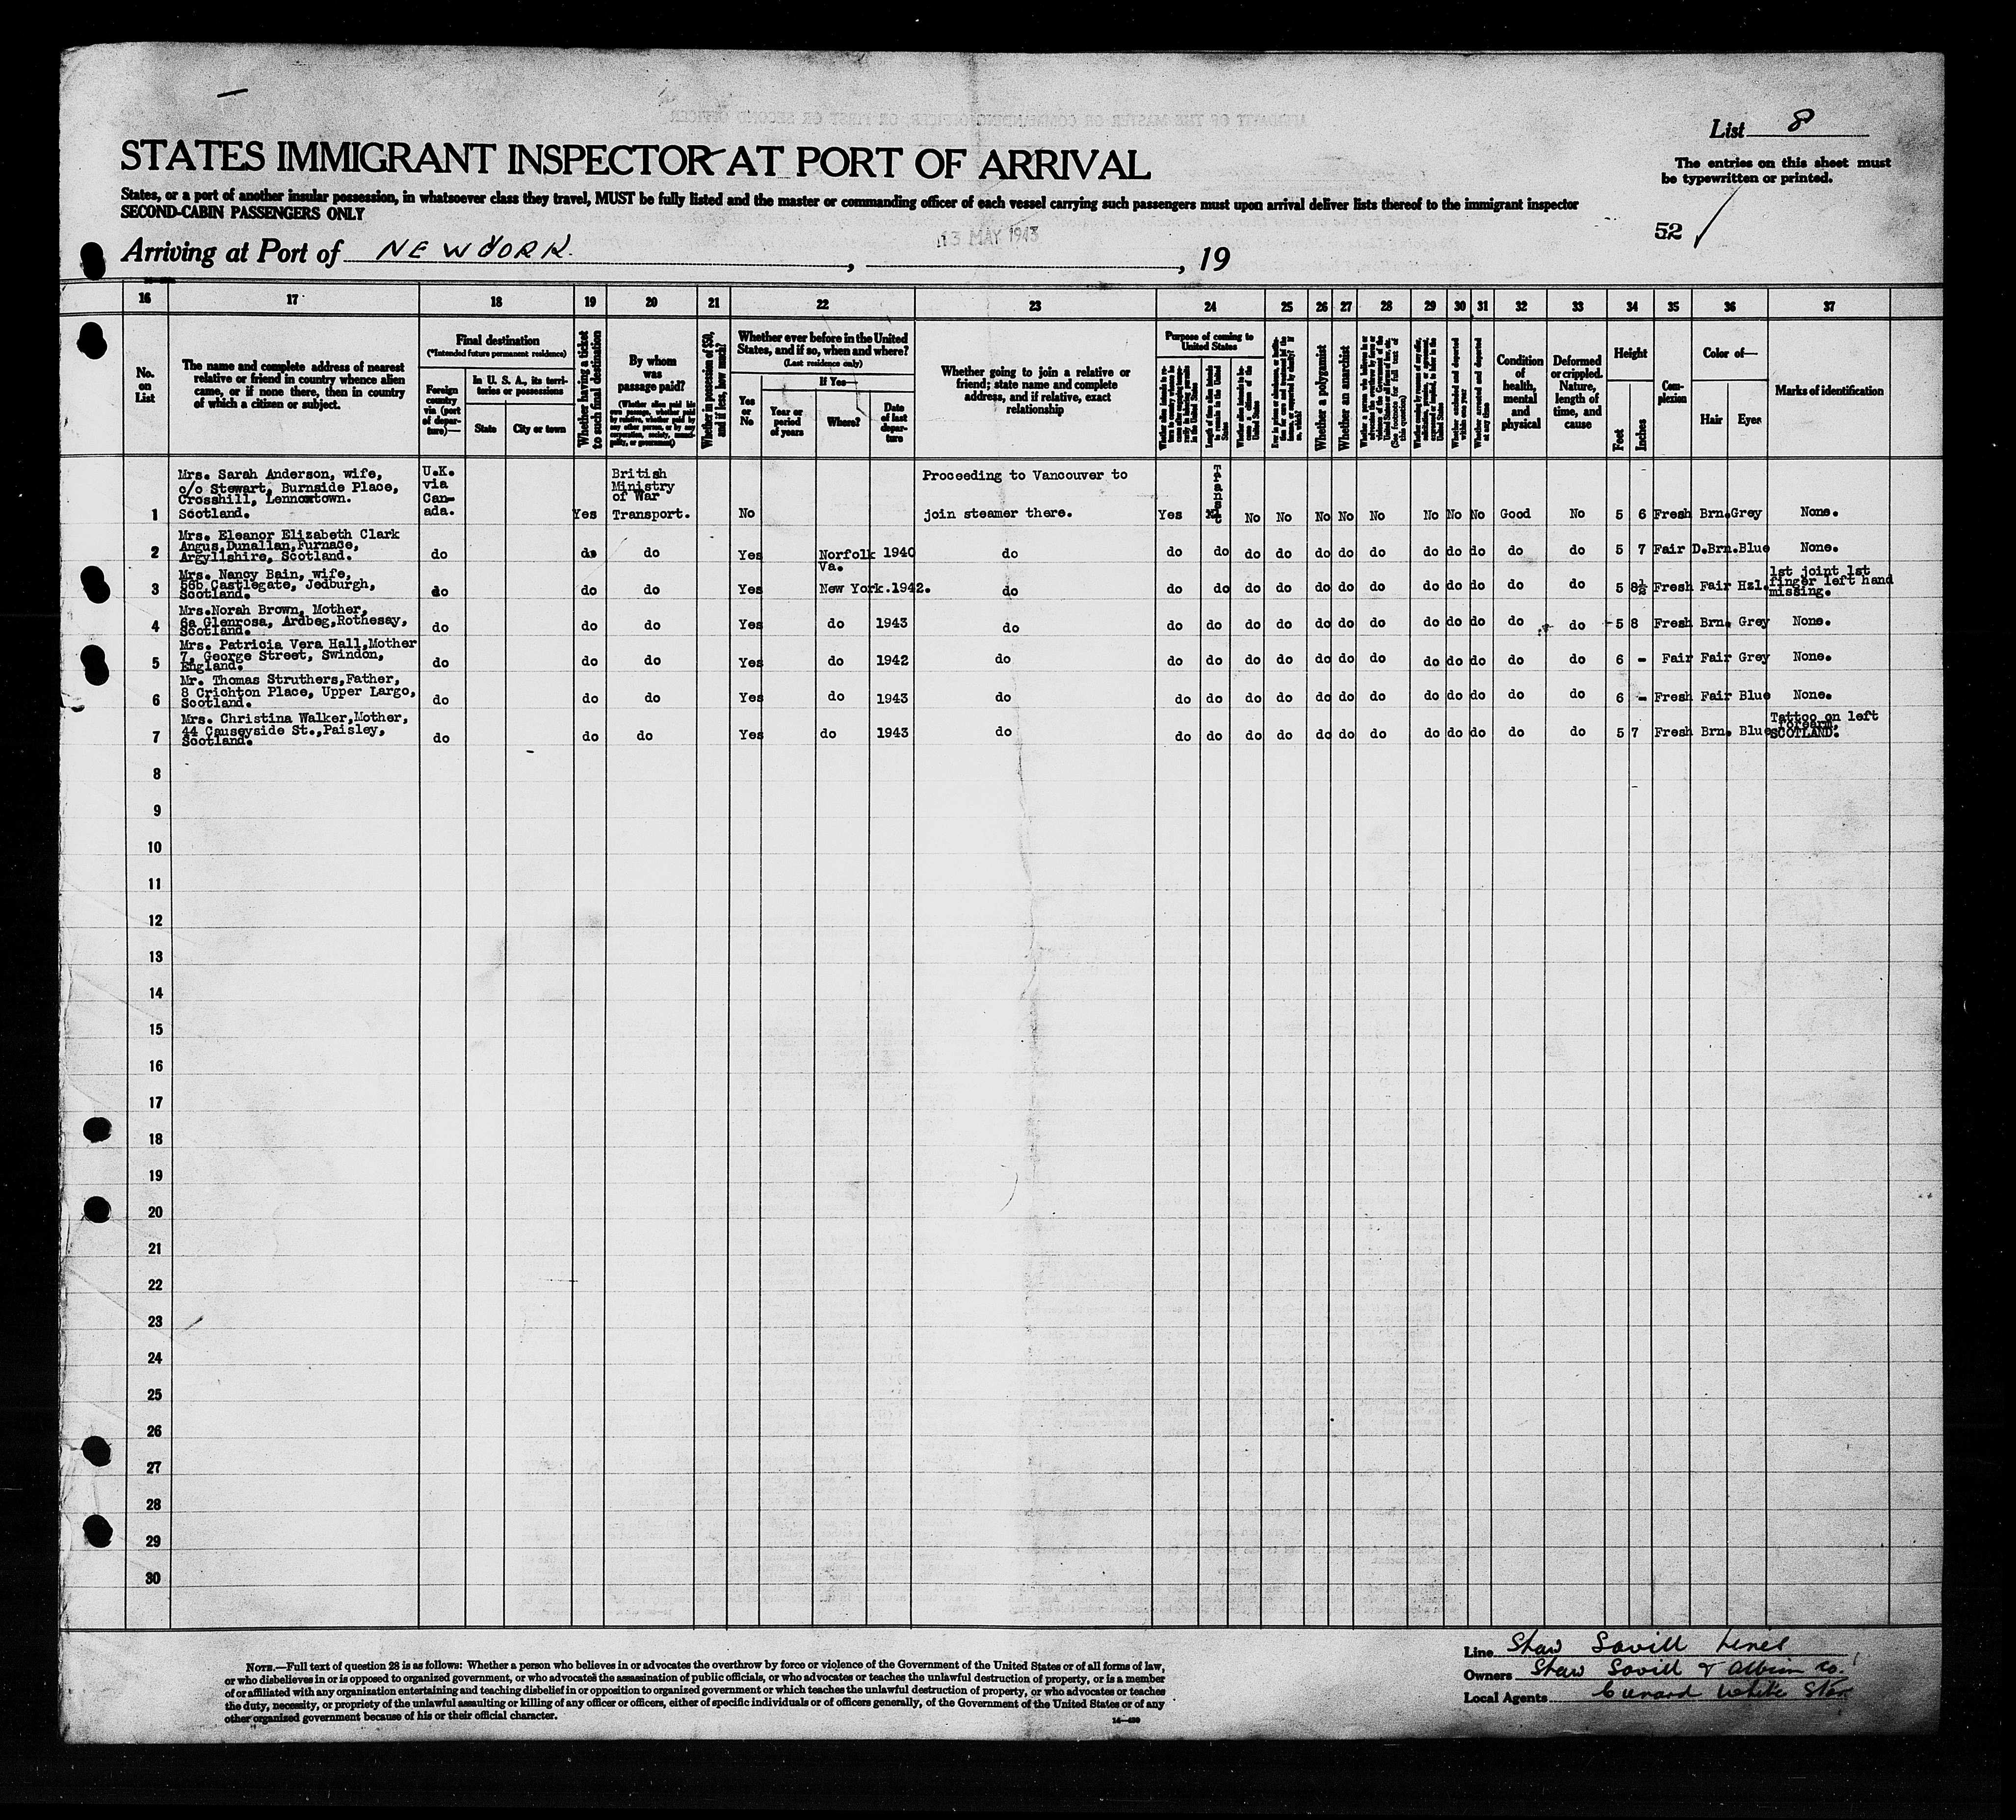 List 8
STATES IMMIGRANT INSPECTOR AT PORT OF ARRIVAL
The entries on this sheet must
be typewritten or printed.
States, or a port of another insular possession, in whatsoever class they travel, MUST be fully listed and the master or commanding officer of each vessel carrying such passengers must upon arrival deliver lists thereof to the immigrant inspector
SECOND-CABIN PASSENGERS ONLY
52
13 MAY 1943
Arriving at Port of NEW YORK , , 19
16 17 18 19 20 21 22 23 24 25 26 27 28 29 30 31 32 33 34 35 36 37
No. on List
The name and complete address of nearest
relative or friend in country whence alien
came, or if none there, then in country
of which a citizen or subject.
Final destination
(*Intended future permanent residence)
Foreign country via (port of departure)—
In U. S. A., its territories or possessions
State
City or town
Whether having a ticket to such final destination
By whom was passage paid?
(Whether alien paid his own passage, whether paid by relative, whether paid by any other person, or by any corporation, society, municipality, or government)
Whether in possession of $50, and if less, how much?
Whether ever before in the United
States, and if so, when and where?
(Last residence only)
Yes or No
If Yes—
Year or period of years
Where?
Date of last departure
Whether going to join a relative or
friend; state name and complete
address, and if relative, exact
relationship
Purpose of coming to United States
Length of time alien intends to remain in the United States
Whether a polygamist
Whether an anarchist
Whether arrested and deported at any time
Condition of health, mental and physical
Deformed or crippled. Nature, length of time, and cause
Height
Feet
Inches
Complexion
Color of—
Hair
Eyes
Marks of identification
Mrs. Sarah Anderson, wife,
c/o Stewart, Burnside Place,
Crosshill, Lennoxtown.
1 Scotland. U.K. via Canada. Yes British Ministry of War Transport. No Proceeding to Vancouver to join steamer there. Yes No No No No No No No No Good No 5 6 Fresh Brn. Grey None.
Mrs. Eleanor Elizabeth Clark
2 Angus, Dunallan, Furnace, do do do Yes Norfolk Va. 1940 do do do do do do do do do do do do do 5 7 Fair D.Brn. Blue None.
Argyllshire, Scotland.
Mrs. Nancy Bain, wife,
3 56b Castlegate, Jedburgh, do do do Yes New York. 1942. do do do do do do do do do do do do do 5 8½ Fresh Fair Hzl. 1st joint 1st finger left hand missing.
Scotland.
Mrs. Norah Brown, Mother,
4 6a Glenrosa, Ardbeg, Rothesay, do do do Yes do 1943 do do do do do do do do do do do do do 5 8 Fresh Brn. Grey None.
Scotland.
Mrs. Patricia Vera Hall, Mother
5 7, George Street, Swindon, do do do Yes do 1942 do do do do do do do do do do do do do 6 - Fair Fair Grey None.
England.
Mr. Thomas Struthers, Father,
6 8 Crichton Place, Upper Largo, do do do Yes do 1943 do do do do do do do do do do do do do 6 - Fresh Fair Blue None.
Scotland.
Mrs. Christina Walker, Mother,
7 44 Causeyside St., Paisley, do do do Yes do 1943 do do do do do do do do do do do do do 5 7 Fresh Brn. Blue Tattoo on left forearm, SCOTLAND.
Scotland.
8
9
10
11
12
13
14
15
16
17
18
19
20
21
22
23
24
25
26
27
28
29
30
NOTE.—Full text of question 28 is as follows: Whether a person who believes in or advocates the overthrow by force or violence of the Government of the United States or of all forms of law,
or who disbelieves in or is opposed to organized government, or who advocates the assassination of public officials, or who advocates or teaches the unlawful destruction of property, or is a member
of or affiliated with any organization entertaining and teaching disbelief in or opposition to organized government or which teaches the unlawful destruction of property, or who advocates or teaches
the duty, necessity, or propriety of the unlawful assaulting or killing of any officer or officers, either of specific individuals or of officers generally, of the Government of the United States or of any
other organized government because of his or their official character.
Line Shaw Savill Lines
Owners Shaw Savill & Albion Co.
Local Agents Cunard White Star